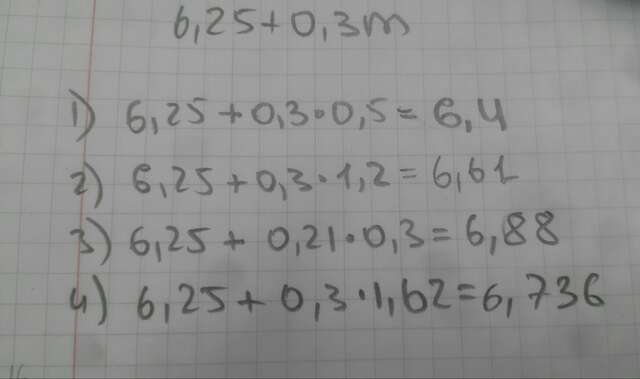 6,25+0,3m
1) 6,25+0,3·0,5=6,4
2) 6,25+0,3·1,2=6,61
3) 6,25+0,21·0,3=6,88
4) 6,25+0,3·1,62=6,736